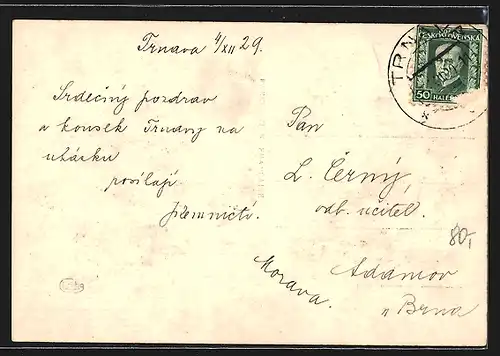 Trnava 4/XII 29.
Srdečný pozdrav
a kousek Trnavy na
ukázku
posílají
Pan
L. Černý,
odb. učitel.
Adamov
u Brna
Morava.
80,-
TRN
ČESKOSLOVENSKÁ
50 HALÉŘ